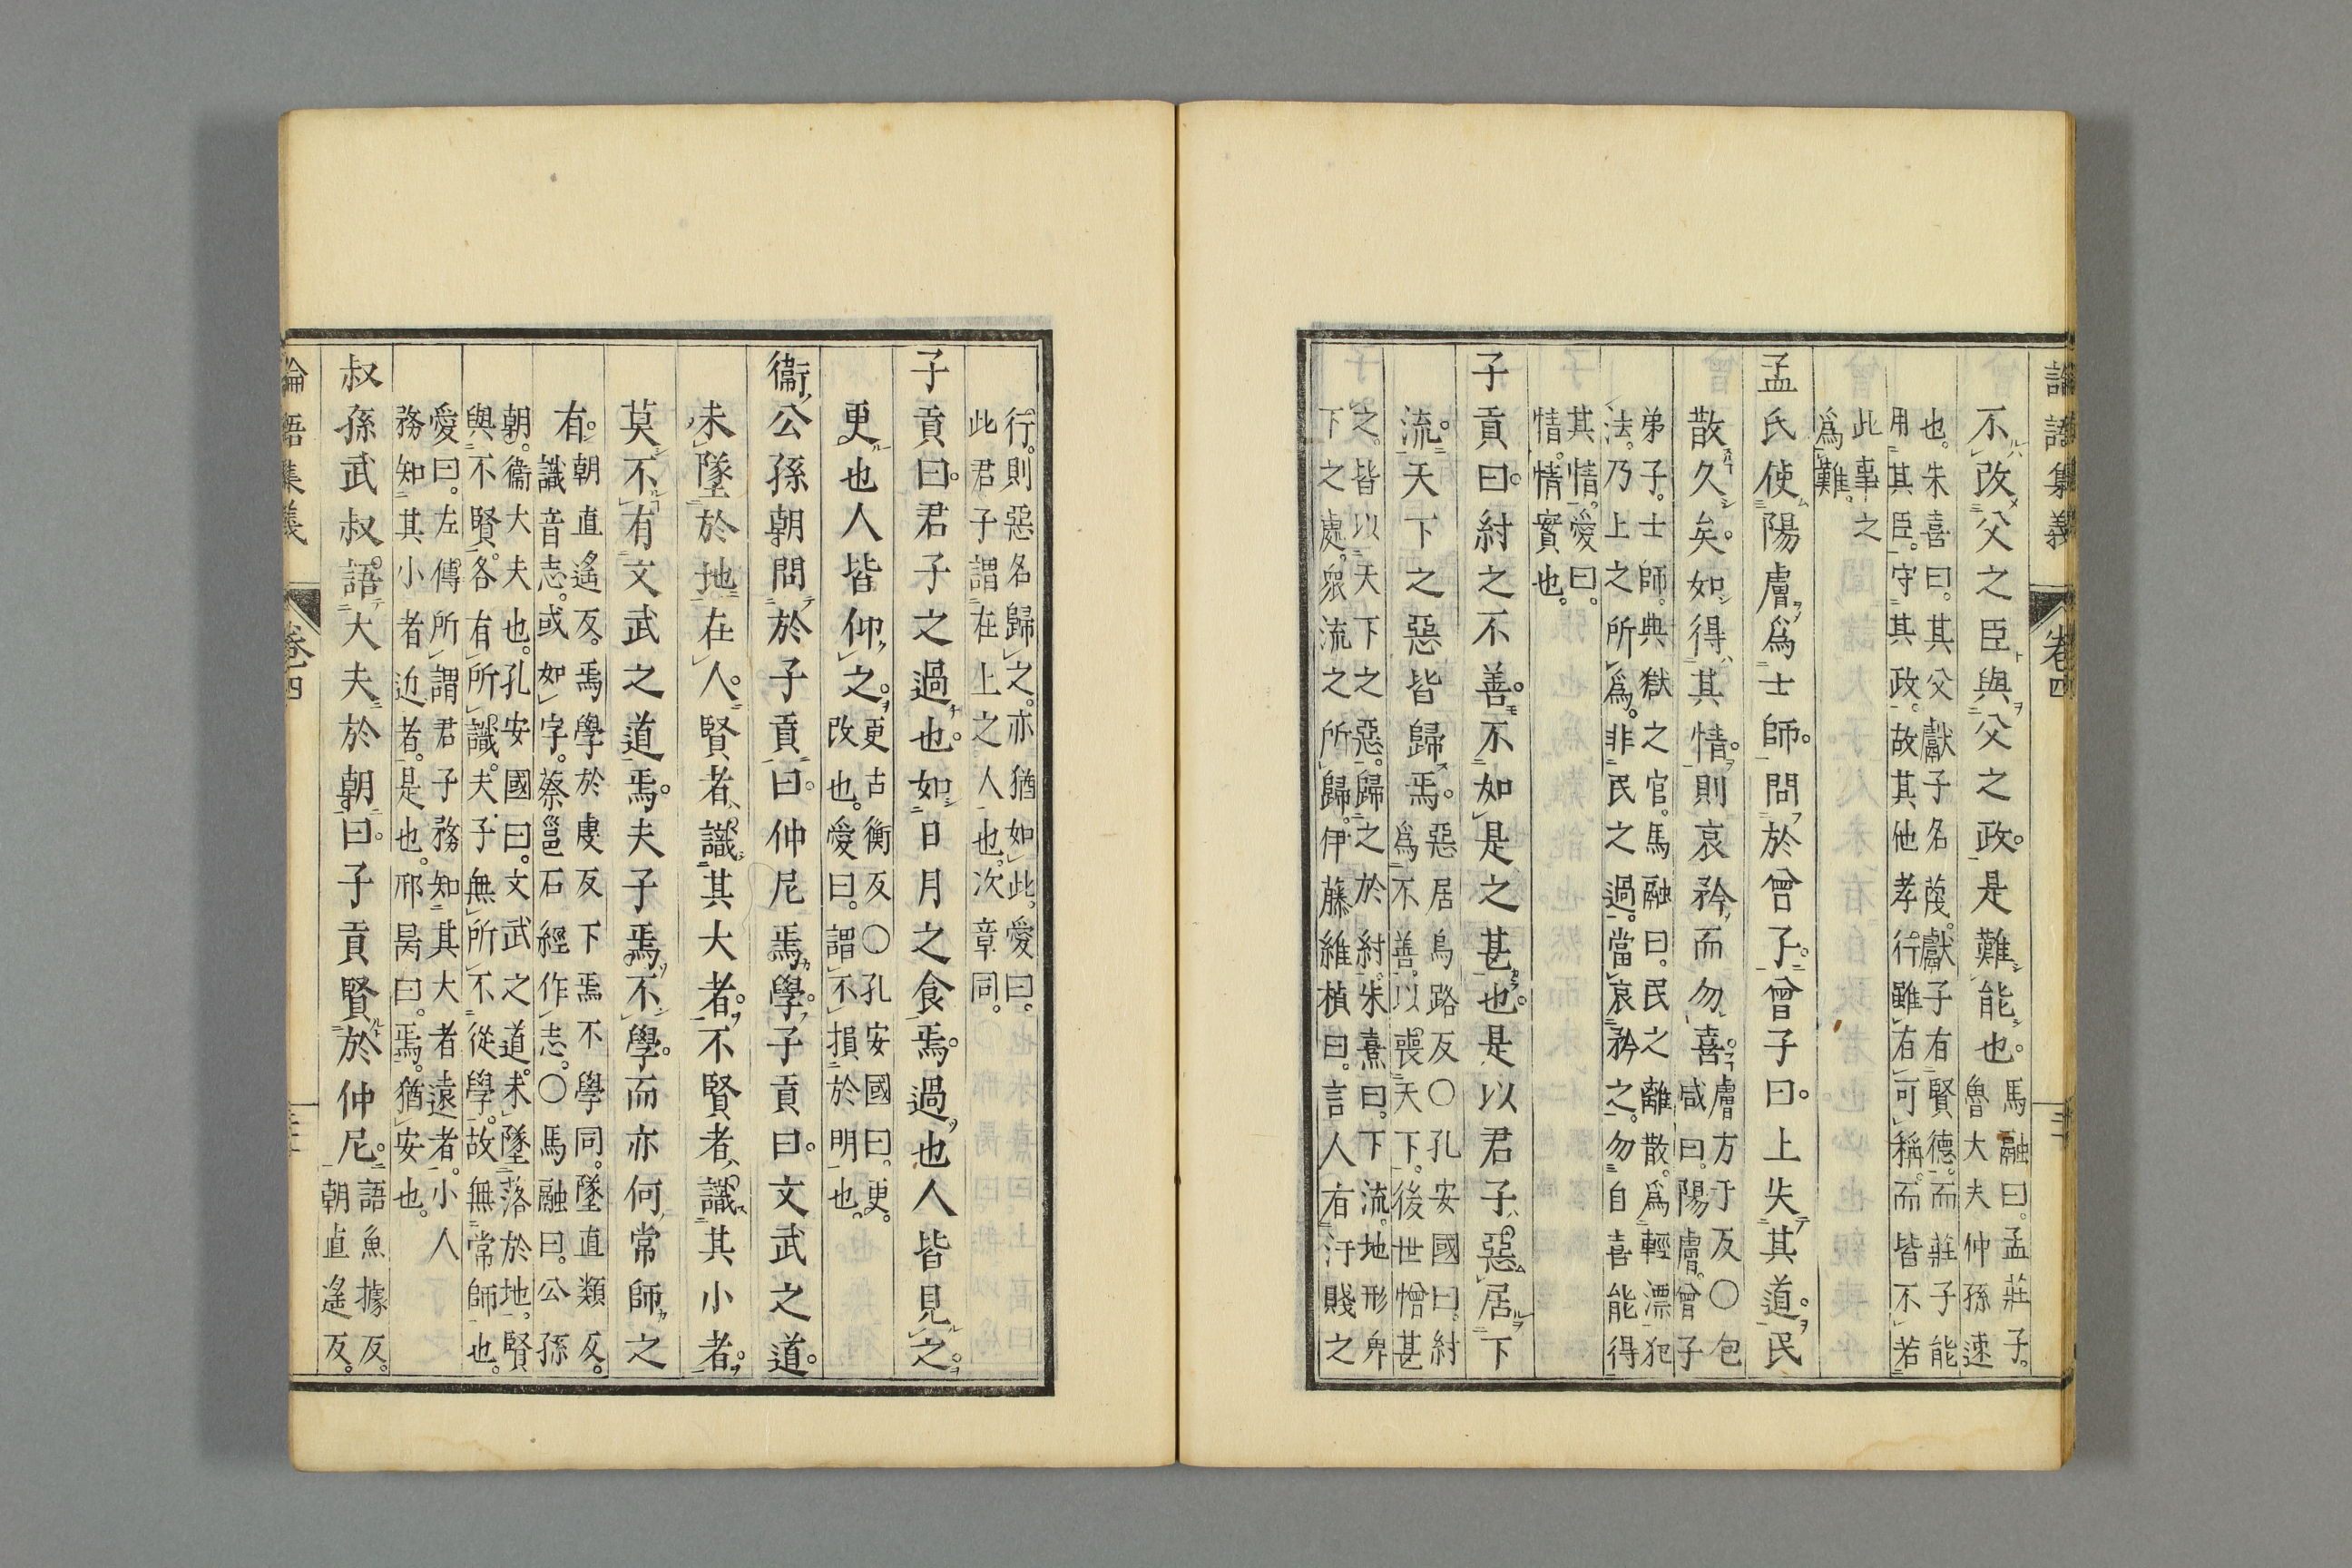 論語集義 卷四
不改父之臣與父之政。是難能也。馬融曰。孟莊子。魯大夫仲孫速
也。朱喜曰。其父獻子名蔑。獻子有賢德。而莊子能用其臣。守其政。故其他孝行。雖有可稱。而皆不若
此事之爲難。
孟氏使陽膚爲士師。問於曾子。曾子曰。上失其道。民
散久矣。如得其情。則哀矜而勿喜。膚方于反〇包咸曰。陽膚。曾子
弟子。士師。典獄之官。馬融曰。民之離散。爲輕漂犯法。乃上之所爲。非民之過。當哀矜之。勿自喜能得
其情。愛曰。情。情實也。
子貢曰。紂之不善。不如是之甚也。是以君子。惡居下
流。天下之惡皆歸焉。惡居烏路反〇孔安國曰。紂爲不善。以喪天下。後世憎甚
之。皆以天下之惡。歸之於紂。朱熹曰。下流。地形卑下之處。衆流之所歸。伊藤維楨曰。言人有汙賤之
行。則惡名歸之。亦猶如此。愛曰。此君子謂在上之人也。次章同。
子貢曰。君子之過也。如日月之食焉。過也人皆見之。
更也人皆仰之。更古衡反〇孔安國曰。更。改也。愛曰。謂不損於明也。
衞公孫朝問於子貢曰。仲尼焉學。子貢曰。文武之道。
未墜於地在人。賢者識其大者。不賢者識其小者。
莫不有文武之道焉。夫子焉不學。而亦何常師之
有。朝直遙反。焉學於虔反下焉不學同。墜直類反。識音志。或如字。蔡邕石經作志。〇馬融曰。公孫
朝。衞大夫也。孔安國曰。文武之道。未墜落於地。賢與不賢。各有所識。夫子無所不從學。故無常師也。
愛曰。左傳所謂君子務知其大者遠者。小人務知其小者近者。是也。邢昺曰。焉。猶安也。
叔孫武叔。語大夫於朝曰。子貢賢於仲尼。語魚據反。朝直遙反。
論語集義 卷四